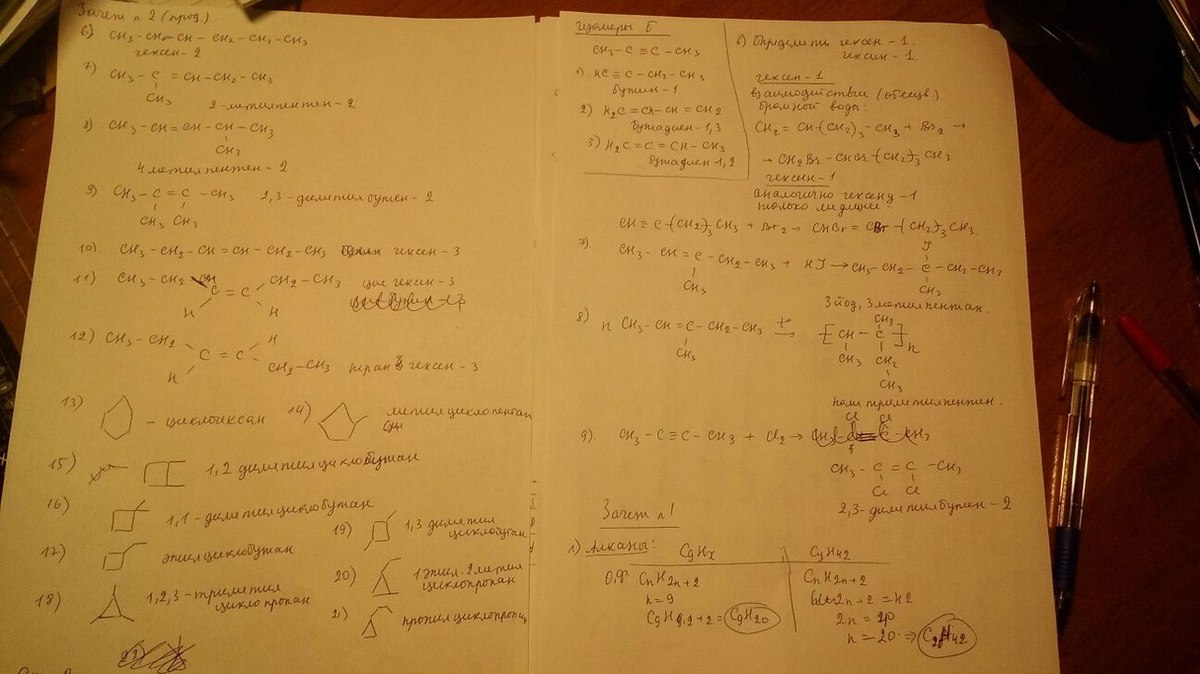 Зачет n 2 (прод.)
6) CH3-CH=CH-CH2-CH2-CH3
гексен-2
7) CH3-C=CH-CH2-CH3
CH3
2-метилпентен-2
8) CH3-CH=CH-CH-CH3
CH3
4 метилпентен-2
9) CH3-C=C-CH3 2,3-диметилбутен-2
CH3 CH3
10) CH3-CH2-CH=CH-CH2-CH3 гексен-3
11) CH3-CH2 CH2-CH3 цис гексен-3
C=C
H H
12) CH3-CH2 H
C=C
H CH2-CH3 транс гексен-3
13) - циклогексан 14) метилциклопентан
15) 1,2 диметилциклобутан
16) 1,1-диметилциклобутан
17) этилциклобутан
18) 1,2,3-триметил
циклопропан
19) 1,3 диметил
циклобутан
20) 1этил, 2метил
циклопропан
21) пропилциклопропан
изомеры Б
CH3-C≡C-CH3
1) HC≡C-CH2-CH3
бутин-1
2) H2C=CH-CH=CH2
бутадиен-1,3
3) H2C=C=CH-CH3
бутадиен-1,2
6) Определить гексен-1
гексин-1.
гексен-1
взаимодействие (обесцв.)
бромной воды:
CH2=CH-(CH2)3-CH3 + Br2 →
→ CH2Br-CHBr-(CH2)3CH3
гексин-1
аналогично гексену-1
только
CH≡C-(CH2)3CH3 + Br2 → CHBr=CBr-(CH2)3CH3
7) CH3-CH=C-CH2-CH3 + HJ → CH3-CH2-C-CH2-CH3
J
CH3 CH3
3йод, 3метилпентан.
8) n CH3-CH=C-CH2-CH3 t° → [CH-C]n
CH3
CH3 CH3 CH2
CH3
9) CH3-C≡C-CH3 + Cl2 →
CH3-C=C-CH3
Cl Cl
2,3-диметилбутен-2
Зачет n1
1) Алканы: C9Hx CyH42
О.Ф. CnH2n+2 CnH2n+2
n=9 2n+2=42
C9H9·2+2=C9H20 2n=40
n=20 ⇒ C20H42